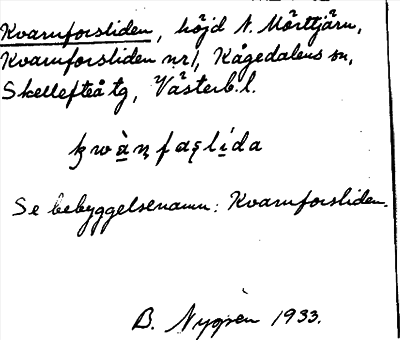 Kvarnforsliden, höjd N. Mörttjärn,
Kvarnforsliden nr 1, Kågedalens sn,
Skellefteå tg, Västerb. l.
Se bebyggelsenamn: Kvarnforsliden.
B. Nygren 1933.